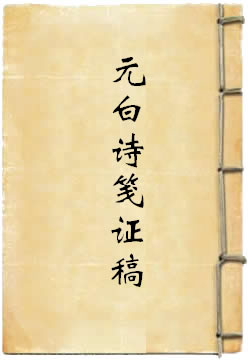 元白诗笺证稿